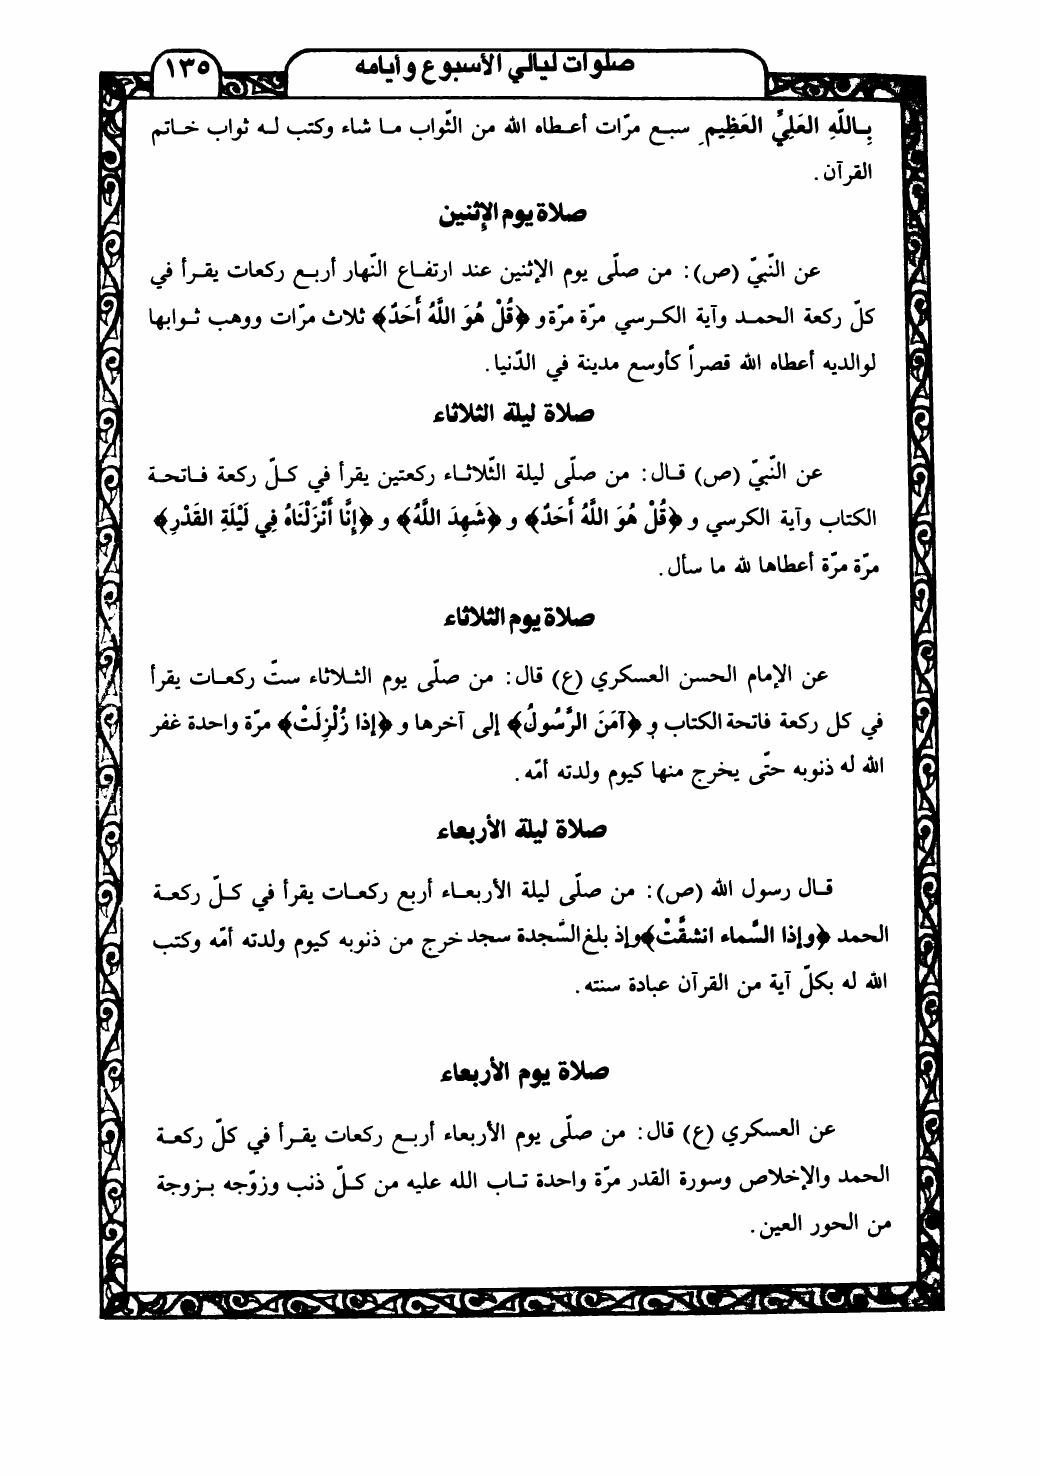 صلوات ليالي الأسبوع وأيامه
١٣٥
بِـاللّهِ العَلِيِّ العَظِيمِ سبـع مرّات أعـطاه الله من الثّواب مـا شاء وكتب لـه ثواب خـاتم
القرآن.
صلاة يوم الإثنين
عن النّبيّ (ص): من صلّى يوم الإثنين عند ارتفـاع النّهار أربـع ركعات يقـرأ في
كلّ ركعة الحمـد وآية الكـرسي مرّة مرّة و ﴿قُلْ هُوَ اللَّهُ أَحَدٌ﴾ ثلاث مرّات ووهب ثـوابها
لوالديه أعطاه الله قصراً كأوسع مدينة في الدّنيا.
صلاة ليلة الثلاثاء
عن النّبيّ (ص) قـال: من صلّى ليلة الثّلاثـاء ركعتين يقرأ في كـلّ ركعة فـاتحـة
الكتاب وآية الكرسي و ﴿قُلْ هُوَ اللَّهُ أَحَدٌ﴾ و ﴿شَهِدَ اللَّهُ﴾ و ﴿إِنَّا أَنْزَلْنَاهُ فِي لَيْلَةِ القَدْرِ﴾
مرّة مرّة أعطاها لله ما سأل.
صلاة يوم الثلاثاء
عن الإمام الحسن العسكري (ع) قال: من صلّى يوم الثـلاثاء ستّ ركعـات يقرأ
في كل ركعة فاتحة الكتاب و ﴿آمَنَ الرَّسُولُ﴾ إلى آخرها و ﴿إذا زُلْزِلَتْ﴾ مرّة واحدة غفر
الله له ذنوبه حتّى يخرج منها كيوم ولدته أمّه.
صلاة ليلة الأربعاء
قـال رسول الله (ص): من صلّى ليلة الأربعـاء أربع ركعـات يقرأ في كـلّ ركعـة
الحمد ﴿وإذا السَّماء انشقَّتْ﴾ وإذ بلغ السّجدة سجد خرج من ذنوبه كيوم ولدته أمّه وكتب
الله له بكلّ آية من القرآن عبادة سنته.
صلاة يوم الأربعاء
عن العسكري (ع) قال: من صلّى يوم الأربعاء أربـع ركعات يقـرأ في كلّ ركعـة
الحمد والإخلاص وسورة القدر مرّة واحدة تـاب الله عليه من كـلّ ذنب وزوّجه بـزوجة
من الحور العين.